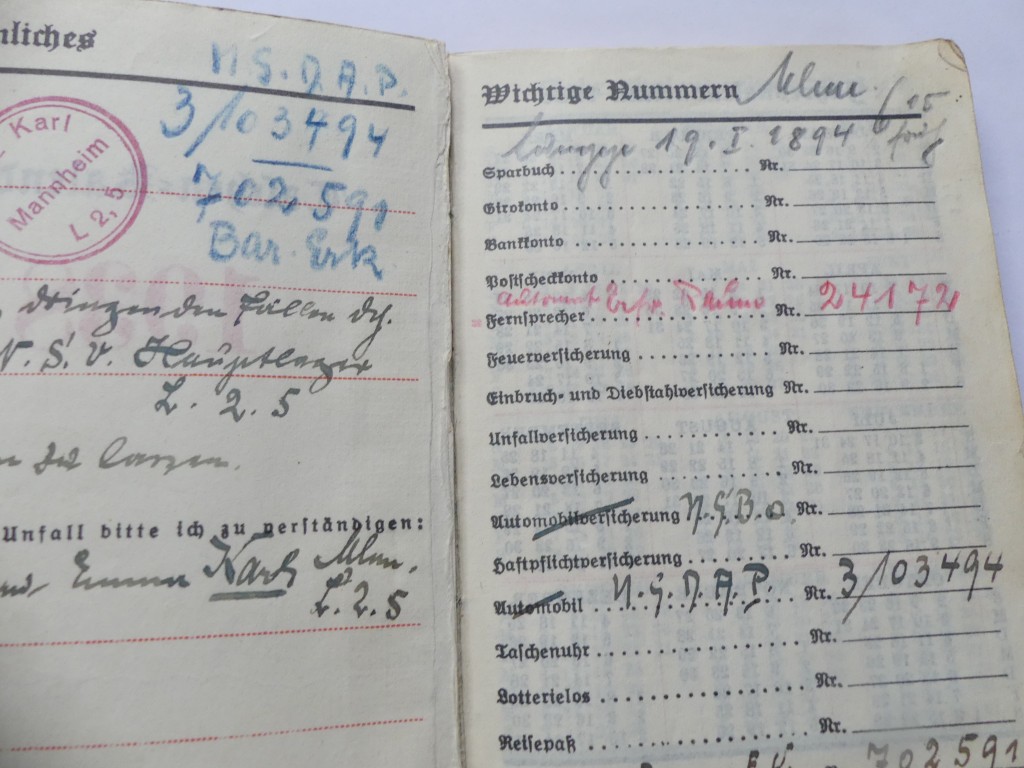 nliches
N S. D. A. P.
3/103494
702591
Bar. Erk
Karl
Mannheim
L 2, 5
dringenden Fällen dch.
N. S. V. Hauptlager
L. 2. 5
Unfall bitte ich zu verständigen:
Emma Karl Mhm.
L. 2. 5
Wichtige Nummern
19. I. 1894
Sparbuch Nr.
Girokonto Nr.
Bankkonto Nr.
Postscheckkonto Nr.
Fernsprecher Nr. 24172
Feuerversicherung Nr.
Einbruch- und Diebstahlversicherung Nr.
Unfallversicherung Nr.
Lebensversicherung Nr.
Automobilversicherung N.S.B.O. Nr.
Haftpflichtversicherung Nr.
Automobil N. S. D. A. P. Nr. 3/103494
Taschenuhr Nr.
Lotterielos Nr.
Reisepaß Nr.
702591